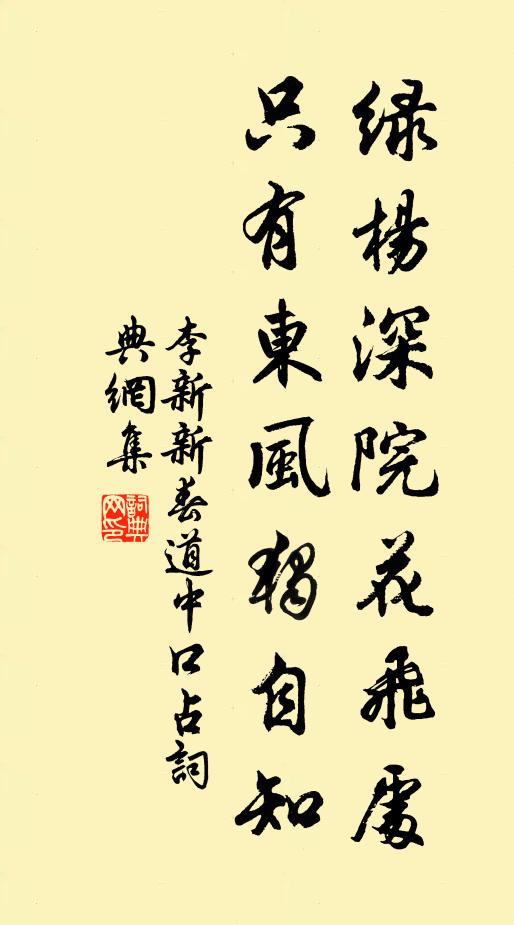 绿楊深院花飛處
只有東風獨自知
李新新春道中口占詞
典網集
詞典網印